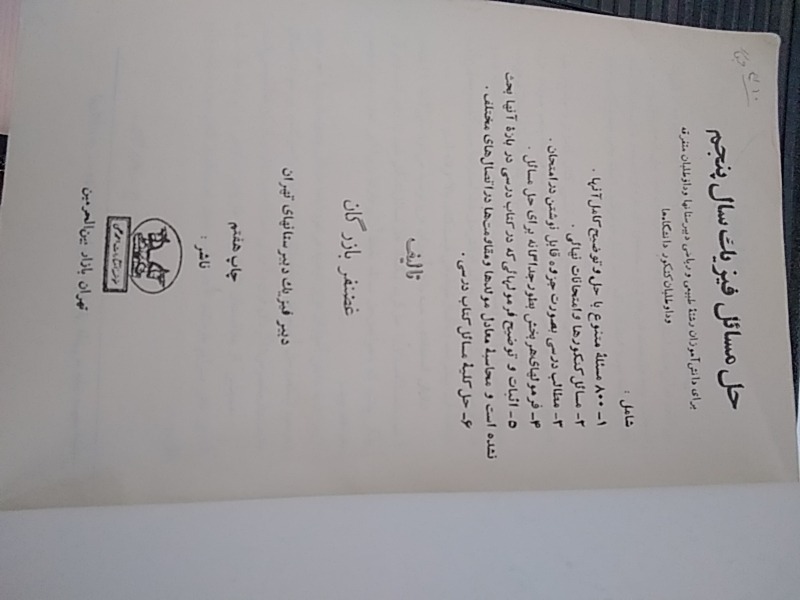 حل مسائل فیزیک سال پنجم
برای دانش‌آموزان رشتهٔ طبیعی و ریاضی دبیرستانها و داوطلبان متفرقه
و داوطلبان کنکور دانشگاهها
شامل :
۱- ۸۰۰ مسئلهٔ متنوع با حل و توضیح کامل آنها .
۲- مسائل کنکورها و امتحانات نهائی .
۳- مطالب درسی بصورت جزوه قابل نوشتن در امتحان .
۴- فرمولهای هر بخش بطور جداگانه برای حل مسائل .
۵- اثبات و توضیح فرمولهائی که در کتاب درسی در بارهٔ آنها بحث
نشده است و محاسبهٔ معادل مولدها و مقاومت‌ها در اتصال‌های مختلف .
۶- حل کلیهٔ مسائل کتاب درسی .
تألیف
غضنفر بازرگان
دبیر فیزیک دبیرستانهای تهران
چاپ هفتم
ناشر :
تهران بازار بین‌الحرمین